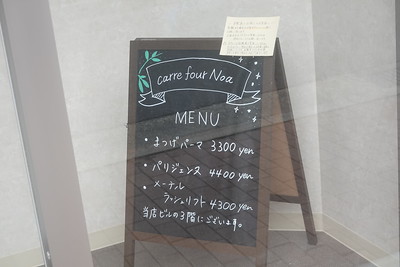 carre four Noa
MENU
・まつげパーマ 3300 yen
・パリジェンヌ 4400 yen
・メーテル
ラッシュリフト 4300 yen
当店ビルの3階にございます。